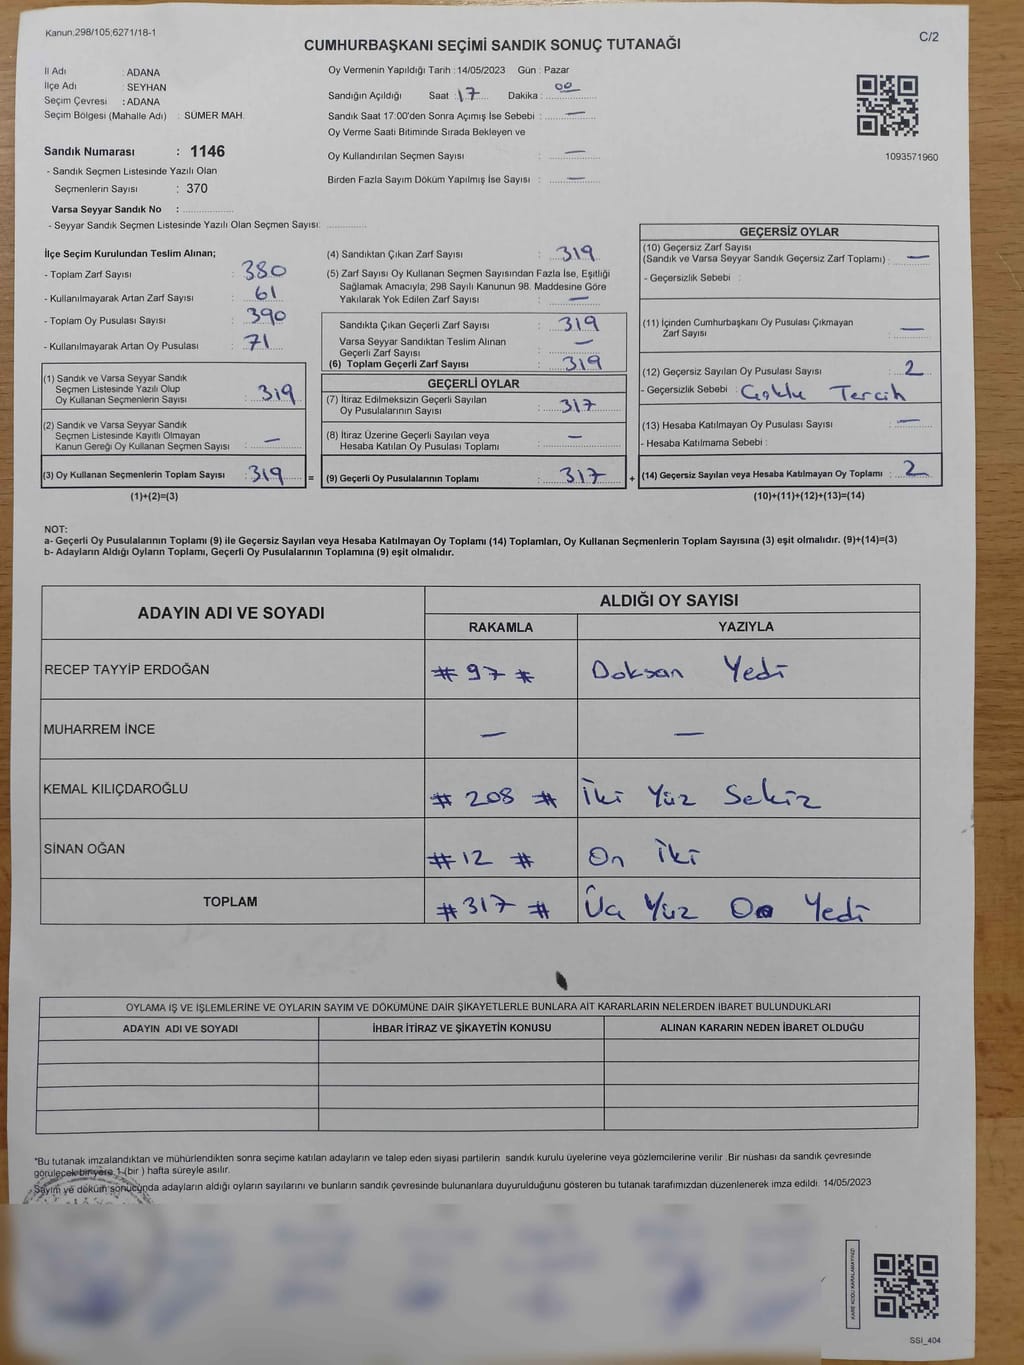 Kanun.298/105;6271/18-1
C/2
CUMHURBAŞKANI SEÇİMİ SANDIK SONUÇ TUTANAĞI
İl Adı : ADANA
İlçe Adı : SEYHAN
Seçim Çevresi : ADANA
Seçim Bölgesi (Mahalle Adı) : SÜMER MAH.
Sandık Numarası : 1146
- Sandık Seçmen Listesinde Yazılı Olan
Seçmenlerin Sayısı : 370
Varsa Seyyar Sandık No :
- Seyyar Sandık Seçmen Listesinde Yazılı Olan Seçmen Sayısı:
Oy Vermenin Yapıldığı Tarih : 14/05/2023 Gün : Pazar
Sandığın Açıldığı Saat : 17 Dakika : 00
Sandık Saat 17:00'den Sonra Açımış İse Sebebi : —
Oy Verme Saati Bitiminde Sırada Bekleyen ve
Oy Kullandırılan Seçmen Sayısı : —
Birden Fazla Sayım Döküm Yapılmış İse Sayısı : —
1093571960
İlçe Seçim Kurulundan Teslim Alınan;
- Toplam Zarf Sayısı : 380
- Kullanılmayarak Artan Zarf Sayısı : 61
- Toplam Oy Pusulası Sayısı : 390
- Kullanılmayarak Artan Oy Pusulası : 71
(1) Sandık ve Varsa Seyyar Sandık
Seçmen Listesinde Yazılı Olup
Oy Kullanan Seçmenlerin Sayısı : 319
(2) Sandık ve Varsa Seyyar Sandık
Seçmen Listesinde Kayıtlı Olmayan
Kanun Gereği Oy Kullanan Seçmen Sayısı : —
(3) Oy Kullanan Seçmenlerin Toplam Sayısı : 319
(1)+(2)=(3)
(4) Sandıktan Çıkan Zarf Sayısı : 319
(5) Zarf Sayısı Oy Kullanan Seçmen Sayısından Fazla İse, Eşitliği
Sağlamak Amacıyla; 298 Sayılı Kanunun 98. Maddesine Göre
Yakılarak Yok Edilen Zarf Sayısı : —
Sandıkta Çıkan Geçerli Zarf Sayısı : 319
Varsa Seyyar Sandıktan Teslim Alınan
Geçerli Zarf Sayısı : —
(6) Toplam Geçerli Zarf Sayısı : 319
GEÇERLİ OYLAR
(7) İtiraz Edilmeksizin Geçerli Sayılan
Oy Pusulalarının Sayısı : 317
(8) İtiraz Üzerine Geçerli Sayılan veya
Hesaba Katılan Oy Pusulası Toplamı : —
= (9) Geçerli Oy Pusulalarının Toplamı : 317 +
GEÇERSİZ OYLAR
(10) Geçersiz Zarf Sayısı
(Sandık ve Varsa Seyyar Sandık Geçersiz Zarf Toplamı) : —
- Geçersizlik Sebebi :
(11) İçinden Cumhurbaşkanı Oy Pusulası Çıkmayan
Zarf Sayısı : —
(12) Geçersiz Sayılan Oy Pusulası Sayısı : 2
- Geçersizlik Sebebi : Çoklu Tercih
(13) Hesaba Katılmayan Oy Pusulası Sayısı : —
- Hesaba Katılmama Sebebi :
(14) Geçersiz Sayılan veya Hesaba Katılmayan Oy Toplamı : 2
(10)+(11)+(12)+(13)=(14)
NOT:
a- Geçerli Oy Pusulalarının Toplamı (9) ile Geçersiz Sayılan veya Hesaba Katılmayan Oy Toplamı (14) Toplamları, Oy Kullanan Seçmenlerin Toplam Sayısına (3) eşit olmalıdır. (9)+(14)=(3)
b- Adayların Aldığı Oyların Toplamı, Geçerli Oy Pusulalarının Toplamına (9) eşit olmalıdır.
ADAYIN ADI VE SOYADI
ALDIĞI OY SAYISI
RAKAMLA YAZIYLA
RECEP TAYYİP ERDOĞAN # 97 # Doksan Yedi
MUHARREM İNCE — —
KEMAL KILIÇDAROĞLU # 208 # İki Yüz Sekiz
SİNAN OĞAN # 12 # On İki
TOPLAM # 317 # Üç Yüz On Yedi
OYLAMA İŞ VE İŞLEMLERİNE VE OYLARIN SAYIM VE DÖKÜMÜNE DAİR ŞİKAYETLERLE BUNLARA AİT KARARLARIN NELERDEN İBARET BULUNDUKLARI
ADAYIN ADI VE SOYADI İHBAR İTİRAZ VE ŞİKAYETİN KONUSU ALINAN KARARIN NEDEN İBARET OLDUĞU
*Bu tutanak imzalandıktan ve mühürlendikten sonra seçime katılan adayların ve talep eden siyasi partilerin sandık kurulu üyelerine veya gözlemcilerine verilir .Bir nüshası da sandık çevresinde
görülecek bir yere 1 (bir ) hafta süreyle asılır.
Sayım ve döküm sonucunda adayların aldığı oyların sayılarını ve bunların sandık çevresinde bulunanlara duyurulduğunu gösteren bu tutanak tarafımızdan düzenlenerek imza edildi. 14/05/2023
KARE KODU KARALAMAYINIZ!
SSI_404